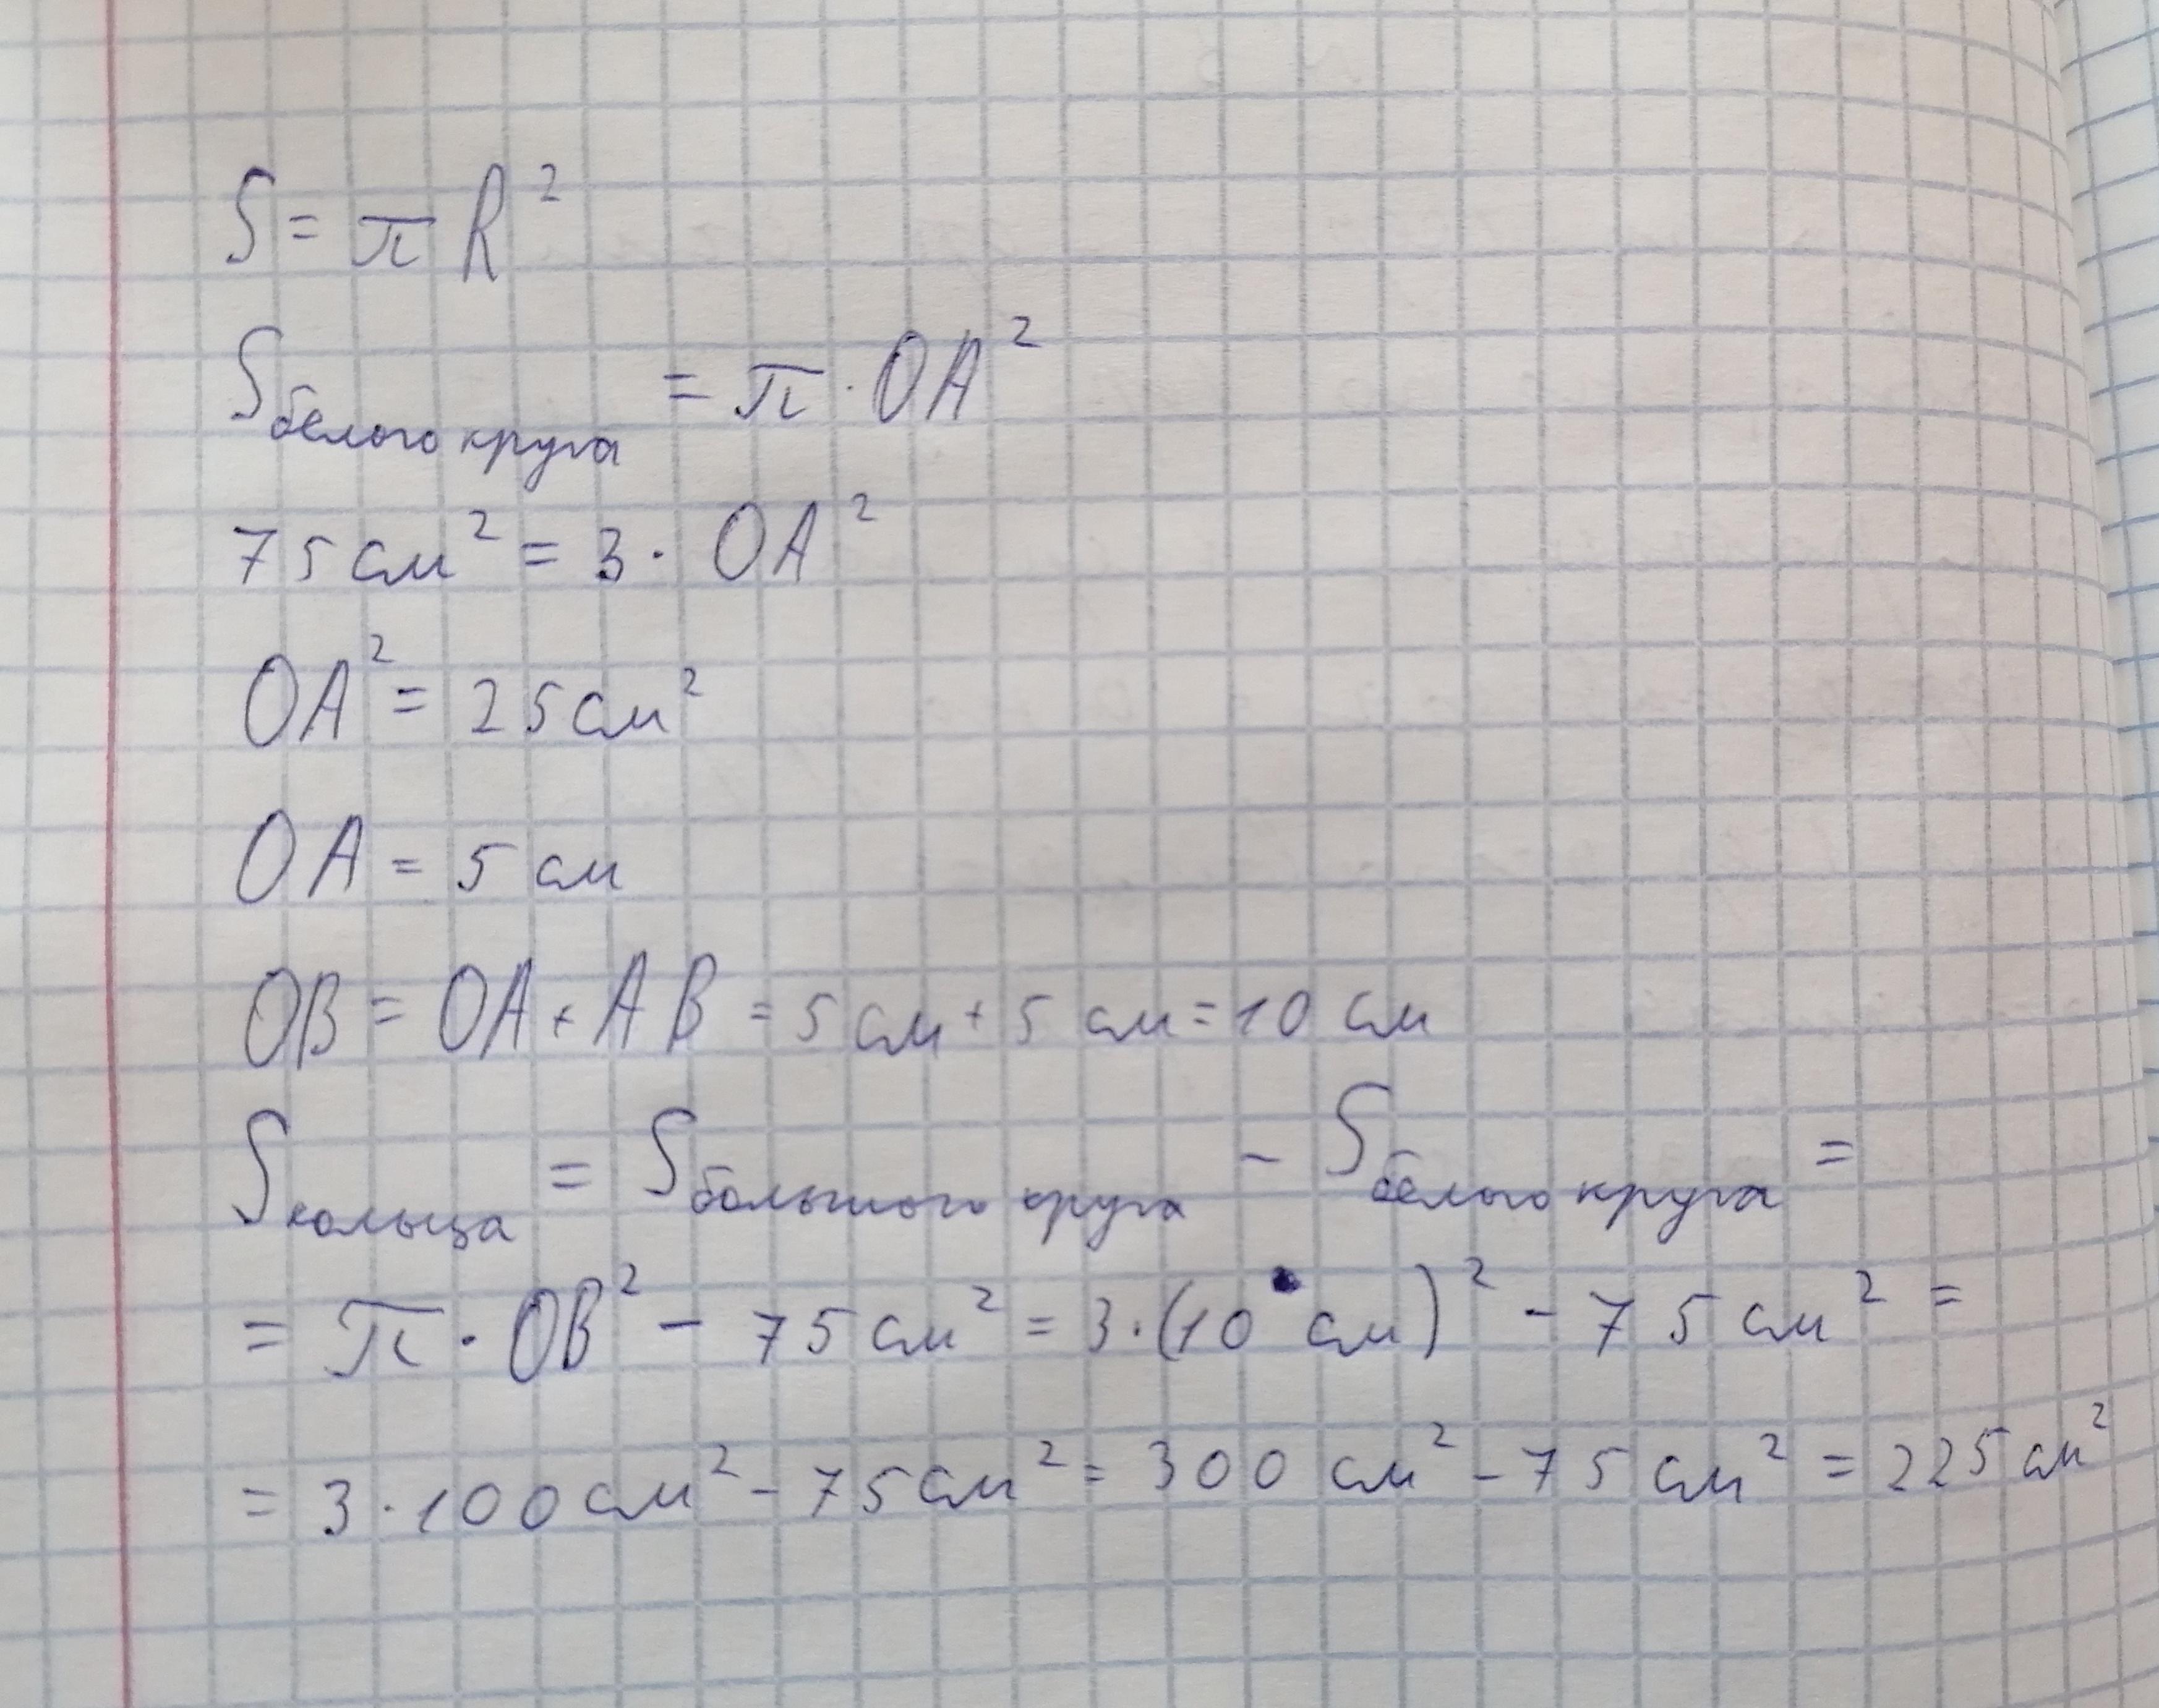 S = π R²
S белого круга = π · OA²
75 см² = 3 · OA²
OA² = 25 см²
OA = 5 см
OB = OA + AB = 5 см + 5 см = 10 см
S кольца = S большого круга - S белого круга =
= π · OB² - 75 см² = 3 · (10 см)² - 75 см² =
= 3 · 100 см² - 75 см² = 300 см² - 75 см² = 225 см²